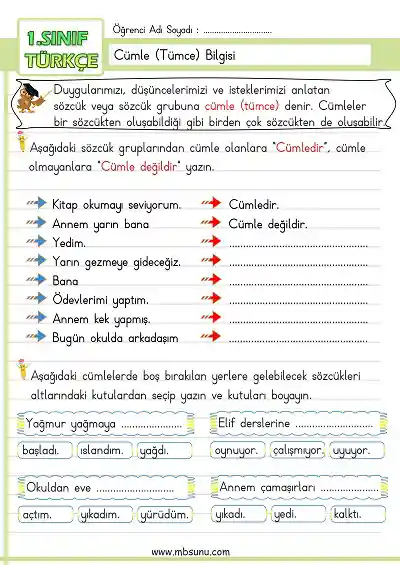 Öğrenci Adı Soyadı : ...............................
1.SINIF
TÜRKÇE
Cümle (Tümce) Bilgisi
Duygularımızı, düşüncelerimizi ve isteklerimizi anlatan
sözcük veya sözcük grubuna cümle (tümce) denir. Cümleler
bir sözcükten oluşabildiği gibi birden çok sözcükten de oluşabilir.
Aşağıdaki sözcük gruplarından cümle olanlara "Cümledir", cümle
olmayanlara "Cümle değildir" yazın.
Kitap okumayı seviyorum. Cümledir.
Annem yarın bana Cümle değildir.
Yedim. ......................................
Yarın gezmeye gideceğiz. ......................................
Bana ......................................
Ödevlerimi yaptım. ......................................
Annem kek yapmış. ......................................
Bugün okulda arkadaşım ......................................
Aşağıdaki cümlelerde boş bırakılan yerlere gelebilecek sözcükleri
altlarındaki kutulardan seçip yazın ve kutuları boyayın.
Yağmur yağmaya ..................... Elif derslerine .........................
başladı. ıslandım. yağdı. oynuyor. çalışmıyor. uyuyor.
Okuldan eve ........................... Annem çamaşırları ....................
açtım. yıkadım. yürüdüm. yıkadı. yedi. kalktı.
www.mbsunu.com